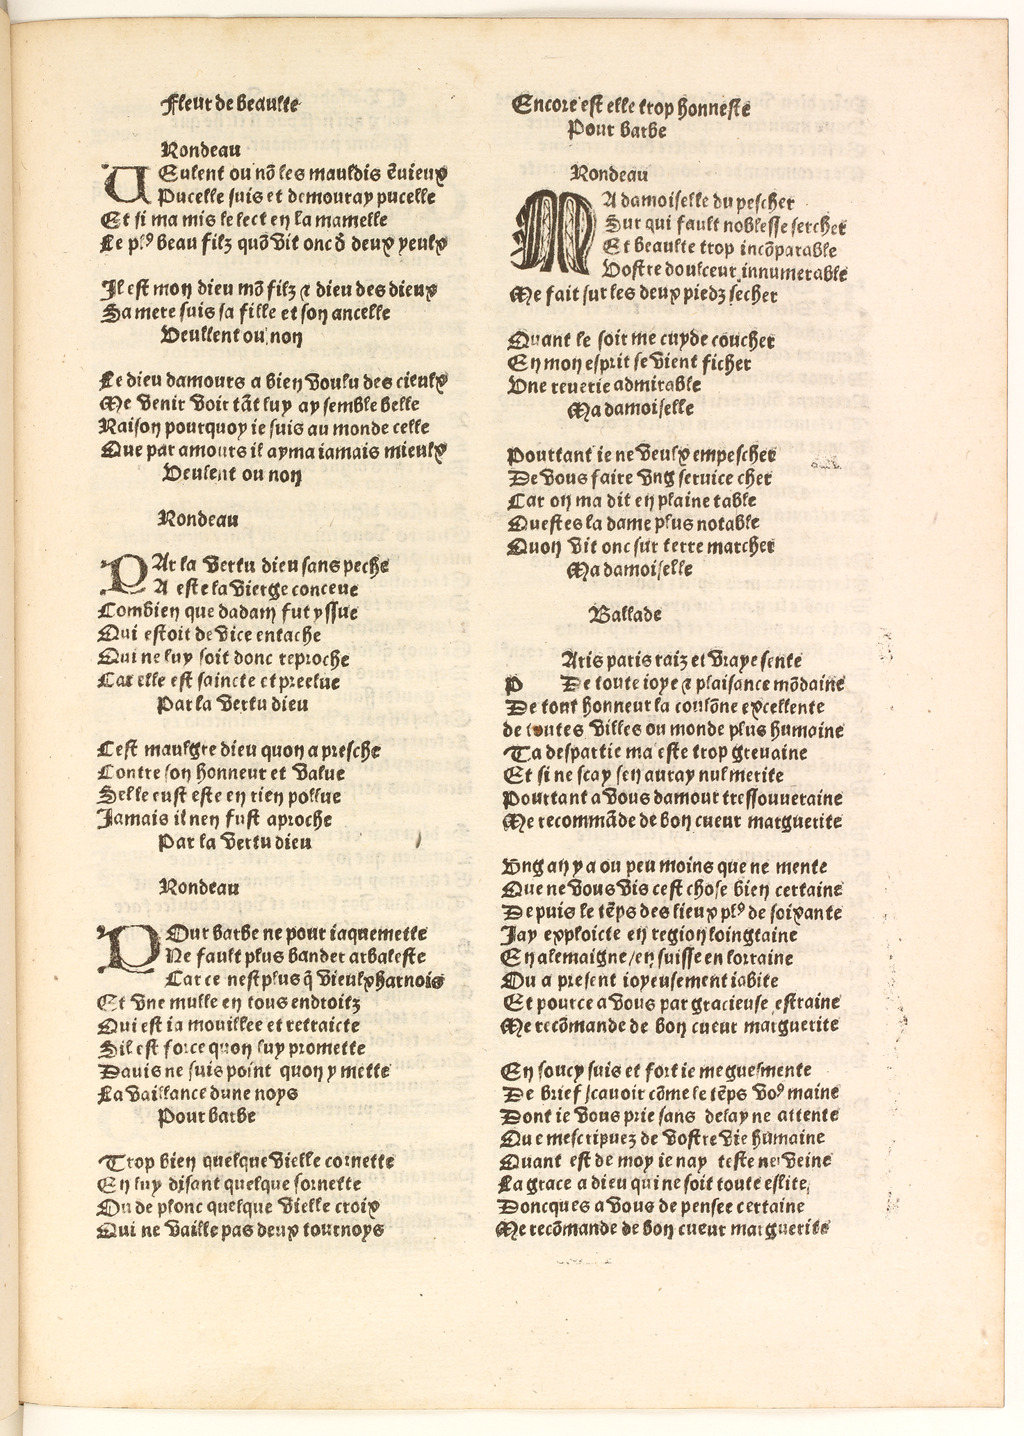 Fleur de beaulte
Rondeau
UEulent ou nõ les mauldis ẽuieux
Pucelle suis et demouray pucelle
Et si ma mis le lect en la mamelle
Le plꝰ beau filz quõ vit onc õ deux yeulx
Il est mon dieu mõ filz ⁊ dieu des dieux
Sa mere suis sa fille et son ancelle
Veullent ou non
Le dieu damours a bien voulu des cieulx
Me venir voir tãt luy ay semble belle
Raison pourquoy ie suis au monde celle
Que par amours il ayma iamais mieulx
Veulent ou non
Rondeau
PAr la vertu dieu sans peche
A este la vierge conceue
Combien que dadam fut yssue
Qui estoit de vice entache
Qui ne luy soit donc reproche
Car elle est saincte et preelue
Par la vertu dieu
Cest maulgre dieu quon a presche
Contre son honneur et value
Selle eust este en rien pollue
Jamais il nen fust aproche
Par la vertu dieu
Rondeau
POur barbe ne pour iaquemette
Ne fault plus bander arbaleste
Car ce nest plus q̃ vieulx harnois
Et vne mulle en tous endroitz
Qui est ia mouillee et retraicte
Sil est force quon luy promette
Dauis ne suis point quon y mette
La vaillance dune noys
Pour barbe
Trop bien quelque vielle cornette
En luy disant quelque sornette
Ou de plonc quelque vielle croix
Qui ne vaille pas deux tournoys
Encore est elle trop honneste
Pour barbe
Rondeau
MA damoiselle du pescher
Sur qui fault noblesse sercher
Et beaulte trop incõparable
Vostre doulceur innumerable
Me fait sur les deux piedz secher
Quant le soir me cuyde coucher
En mon esprit se vient ficher
Vne reuerie admirable
Ma damoiselle
Pourtant ie ne veulx empescher
De vous faire vng seruice cher
Car on ma dit en plaine table
Questes la dame plus notable
Quon vit onc sur terre marcher
Ma damoiselle
Ballade
Aris paris raiz et vraye sente
p De toute ioye ⁊ plaisance mõdaine
De tout honneur la coulõne excellente
de toutes villes ou monde plus humaine
Ta despartie ma este trop greuaine
Et si ne scay sen auray nul merite
Pourtant a vous damour tressouueraine
Me recommãde de bon cueur marguerite
Vng an y a ou peu moins que ne mente
Que ne vous vis cest chose bien certaine
Depuis le tẽps des lieux plꝰ de soixante
Jay exploicte en region loingtaine
En alemaigne/en suisse en lorraine
Ou a present ioyeusement iabite
Et pource a vous par gracieuse estraine
Me recõmande de bon cueur marguerite
En soucy suis et fort ie me guesmente
De brief scauoir cõme le tẽps voꝰ maine
Dont ie vous prie sans delay ne attente
Que mescripuez de vostre vie humaine
Quant est de moy ie nay teste ne veine
La grace a dieu qui ne soit toute eslite
Doncques a vous de pensee certaine
Me recõmande de bon cueur marguerite